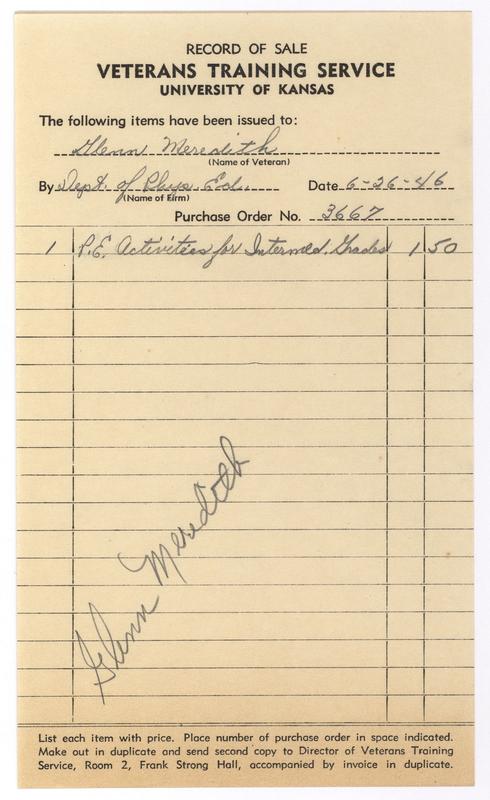 RECORD OF SALE
VETERANS TRAINING SERVICE
UNIVERSITY OF KANSAS
The following items have been issued to:
Glenn Meredith
(Name of Veteran)
By Dept. of Phys. Ed. Date 6-26-46
(Name of Firm)
Purchase Order No. 3667
1 P.E. Activities for Intermed. Grades 1 50
Glenn Meredith
List each item with price. Place number of purchase order in space indicated.
Make out in duplicate and send second copy to Director of Veterans Training
Service, Room 2, Frank Strong Hall, accompanied by invoice in duplicate.